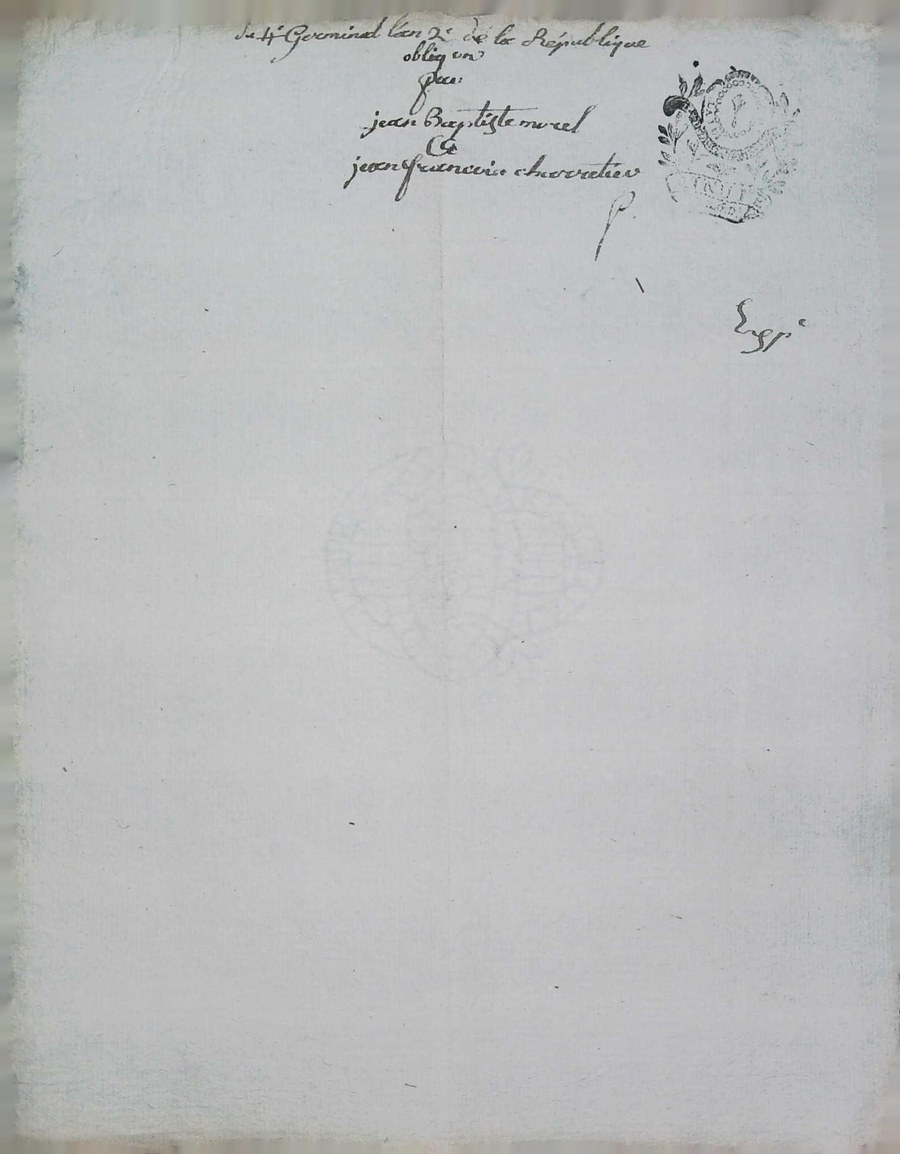 du 4e Germinal l'an 2e de la République
obligon
par
jean Baptiste morel
Ca
jean francois charretier
P.
Expe